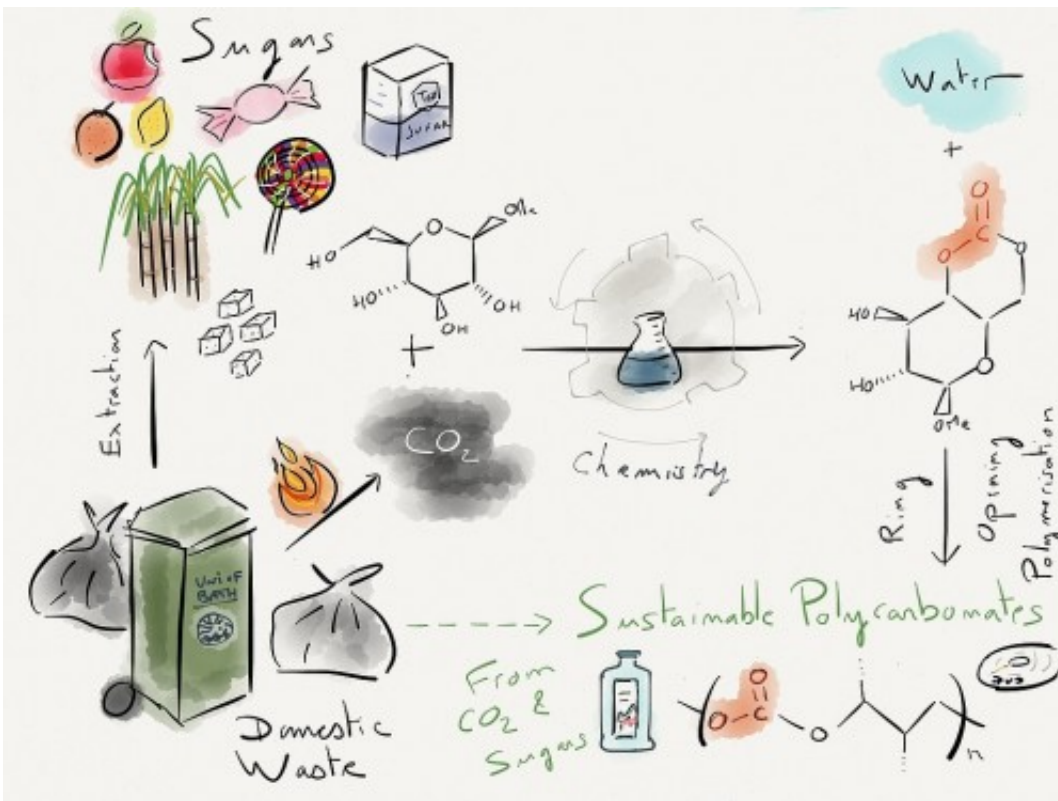 Sugars
SUGAR
Water
+
O
C
O
O
HO
HO
O
OMe
O
OMe
HO
HO
OH
OH
+
CO₂
Extraction
Chemistry
Ring
Opening
Polymerisation
Uni of
BATH
Domestic
Waste
Sustainable Polycarbonates
From
CO₂ &
Sugars
O
O-C
O
n